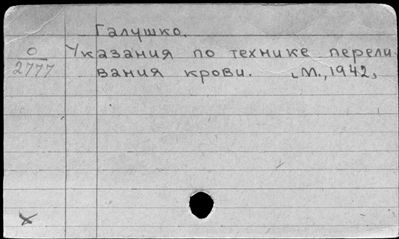 Галушко.
О
2777
Указания по технике перели
вания крови. М., 1942,